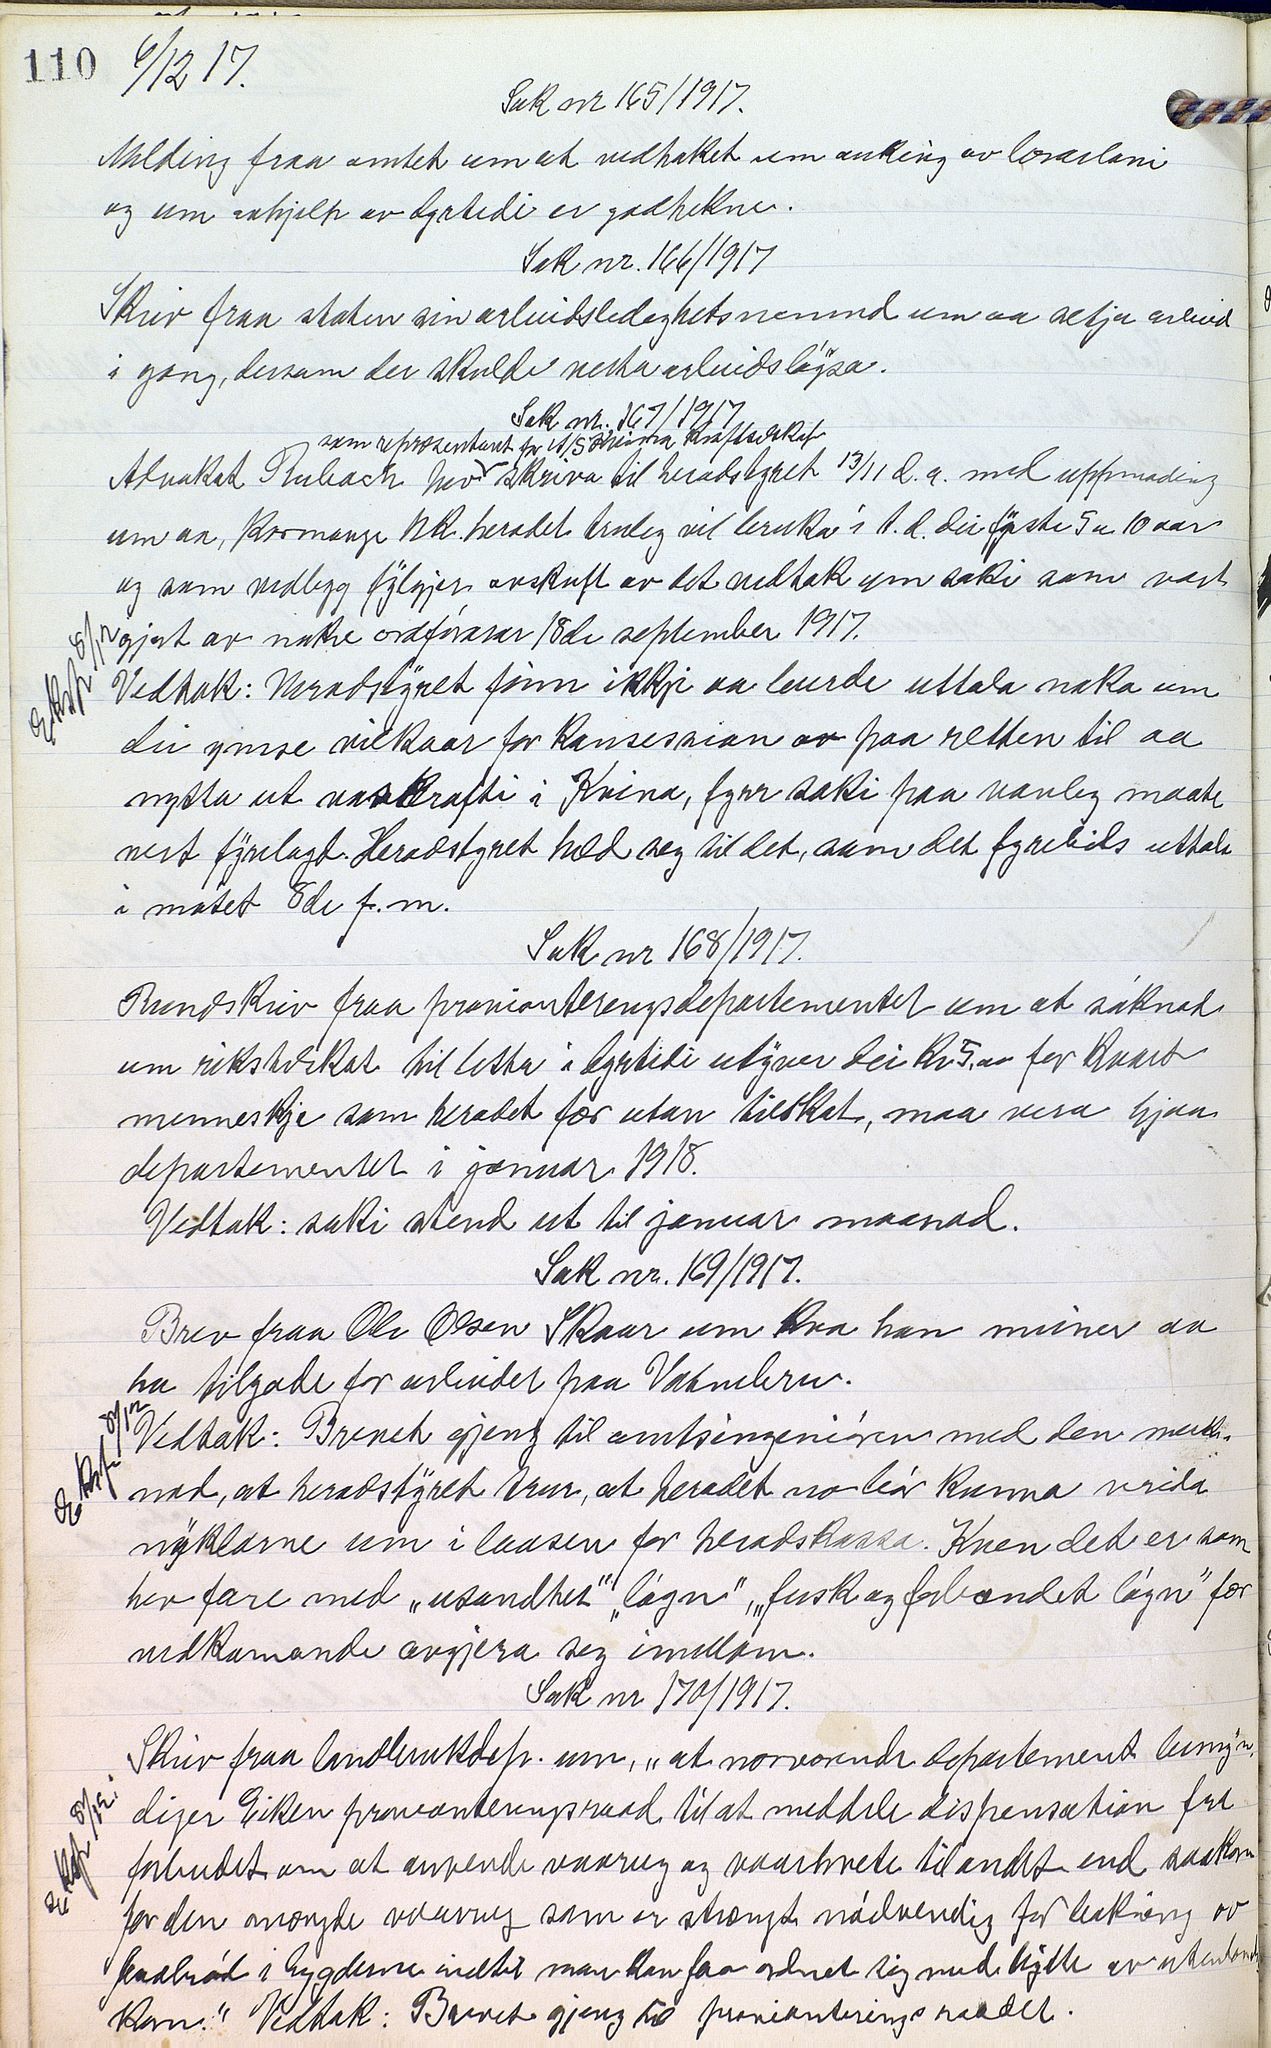 110 6/12 17.
Sak nr 165/1917.
Melding fraa amtet um at vedtaket um auking av
og um avhjelp av dyrtidi er godtekne.
Sak nr. 166/1917
Skriv fraa staten sin arbeidsledighetsnemnd um aa setja arbeid
i gang, dersom der skulde verta arbeidsløysa.
Sak nr. 167/1917
som repræsentant for A/S Kvina Kraftselskap
Advokat Rubach hev skriva til heradstyret 13/11 d. a. med uppmoding
um aa, kormange HK. heradet truleg vil bruka i t. d. dei fyste 5 a 10 aar
og som vedlegg fylgjer avskrift av det vedtak um saki som vart
gjort av nokre ordførarar 18de september 1917.
Ekstp. 8/12
Vedtak: Heradstyret finn ikkje aa burde uttala noko um
dei ymse vilkaar for konsession av paa retten til aa
nytta ut vasskrafti i Kvina, fyrr saki paa vanleg maate
vert fyrelagt. Heradstyret held seg til det, som det fyrebils uttala
i møtet 8de f. m.
Sak nr 168/1917.
Rundskriv fraa provianteringsdepartementet um at søknad
um rikstilskot til letta i dyrtidi utyver dei kr 5,00 for kvart
menneskje som heradet fær utan tilskot, maa vera hjaa
departementet i januar 1918.
Vedtak: saki stend ut til januar maanad.
Sak nr. 169/1917.
Brev fraa Ole Olsen Skaar um kva han meiner aa
ha tilgode for arbeidet paa Vatnebru.
Ekstp. 8/12
Vedtak: Brevet gjeng til amtsingeniøren med den merk-
nad, at heradstyret trur, at heradet no bør kunna vrida
nyklarne um i laasen for heradskassa. Kven det er som
hev fare med „usandhet" „løgn", „fusk og forbandet løgn" fær
vedkomande avgjera seg imellom.
Sak nr 170/1917.
Skriv fraa landbruksdep. um, „at nærværende departement bemyn-
diger Eiken provianteringsraad til at meddele dispensation fra
Eksp. 8/12.
forbudet om at anvende vaarrug og vaarhvete til andet end saakorn
for den mængde vaarrug som er strængt nødvendig for baking av
fladbrød i bygderne indtil man kan faa ordnet sig med bytte av utenlandsk
korn." Vedtak: Brevet gjeng til provianteringsraadet.